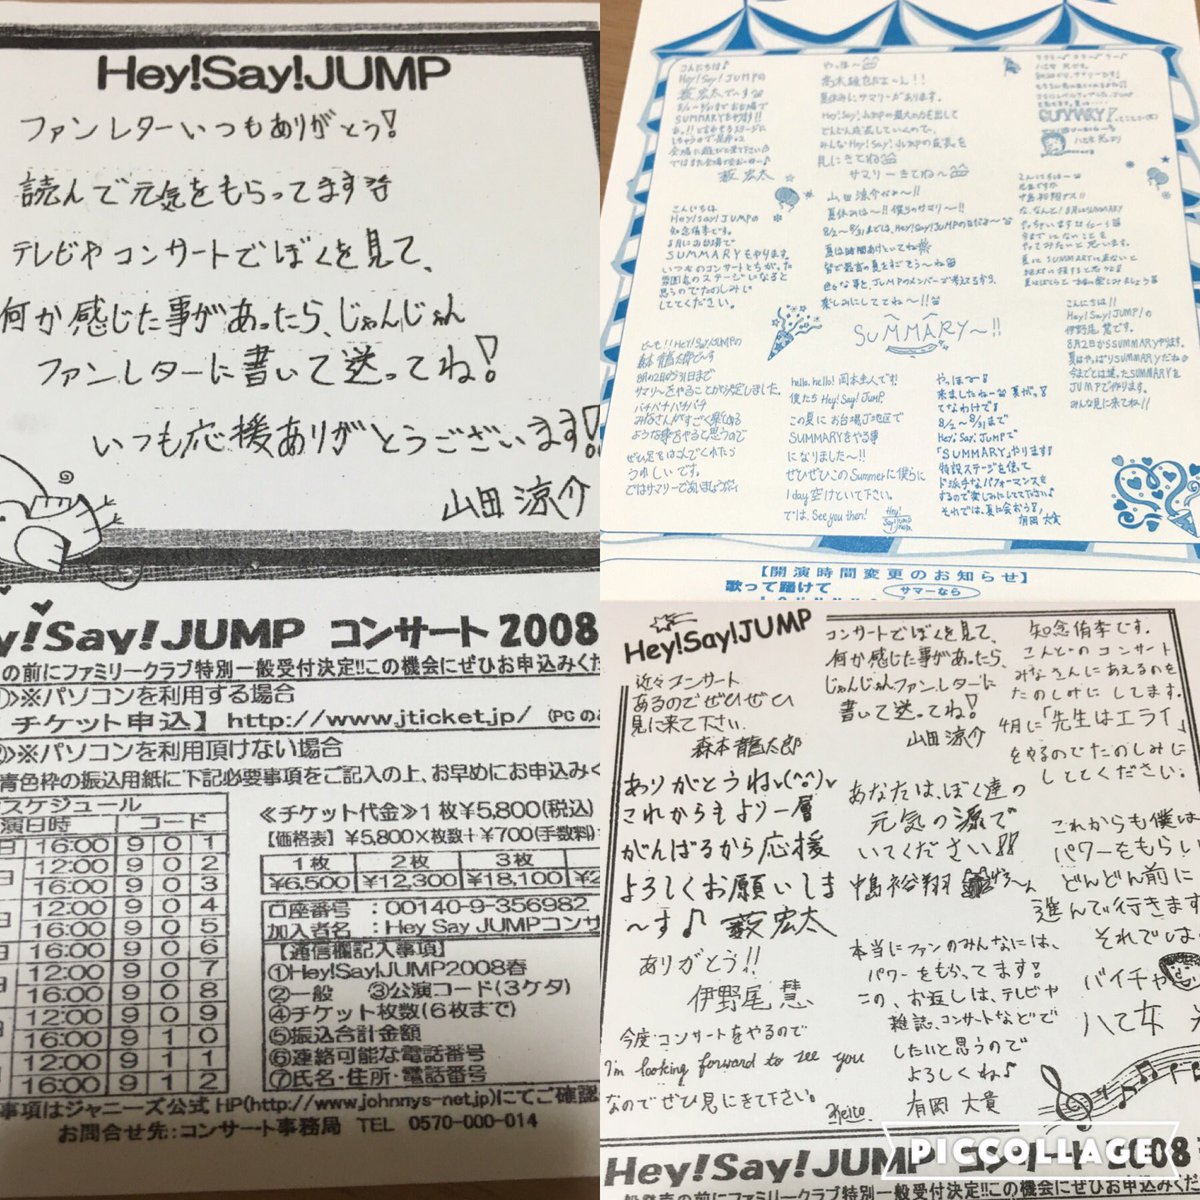 Hey!Say!JUMP
ファンレターいつもありがとう!
読んで元気をもらってます
テレビやコンサートでぼくを見て、
何か感じた事があったら、じゃんじゃん
ファンレターに書いて送ってね!
いつも応援ありがとうございます!
山田涼介
y!Say!JUMP コンサート 2008
の前にファミリークラブ特別一般受付決定!!この機会にぜひお申込みくだ
※パソコンを利用する場合
チケット申込】http://www.jticket.jp/ (PCのみ
※パソコンを利用頂けない場合
青色枠の振込用紙に下記必要事項をご記入の上、お早めにお申込みく
スケジュール
演日時 コード
16:00 9 0 1
12:00 9 0 2
16:00 9 0 3
12:00 9 0 4
16:00 9 0 5
16:00 9 0 6
12:00 9 0 7
16:00 9 0 8
12:00 9 0 9
16:00 9 1 0
12:00 9 1 1
16:00 9 1 2
≪チケット代金≫1枚¥5,800(税込)
【価格表】¥5,800×枚数+¥700(手数料)
1枚 2枚 3枚
¥6,500 ¥12,300 ¥18,100
口座番号 :00140-9-356982
加入者名 :Hey Say JUMPコンサ
【通信欄記入事項】
①Hey!Say!JUMP2008春
②一般 ③公演コード(3ケタ)
④チケット枚数(6枚まで)
⑤振込合計金額
⑥連絡可能な電話番号
⑦氏名・住所・電話番号
事項はジャニーズ公式HP(http://www.johnnys-net.jp)にてご確認
お問合せ先:コンサート事務局 TEL 0570-000-014
こんにちは♪
Hey!Say!JUMPの
薮宏太でーす
SUMMARYをやります!!
薮 宏太
やっほー
高木雄也だよ〜ん!!
夏休みにサマリーがあります。
Hey!Say!JUMPの最大の力を出して
どんどん成長していくので、
みんなHey!Say!JUMPの成長を
見にきてね
サマリーきてね〜
こんにちは
Hey!Say!JUMPの
知念侑李です。
8月にお台場で
SUMMARYをやります。
いつものコンサートとちがった
雰囲気のステージになると
思うのでたのしみに
しててください。
山田涼介だよ〜!!
夏休みは〜!!僕らのサマリ〜!!
8/2〜8/31までは、Hey!Say!JUMPの日だよ〜
夏は時間あけといてね
皆で最高の夏をすごそう〜ね
色々な事を、JUMPのメンバーで考えてるから、
楽しみにしててね〜!!
SUMMARY〜!!
こんにちは!!
Hey!Say!JUMP!の
伊野尾 慧です。
8月2日からSUMMARYやります。
夏はやっぱりSUMMARYだね
今までとは違ったSUMMARYを
JUMPで作ります。
みんな見に来てね!!
ど〜も!!Hey!Say!JUMPの
森本龍太郎で〜す
8月の2日から31日まで
サマリーをやることが決定しました。
ぜひ足をはこんでくれたら
うれしいです。
hello,hello!岡本圭人です!
僕たちHey!Say!JUMP
この夏にお台場J地区で
SUMMARYをやる事
になりました〜!!
ぜひぜひこのSummerに僕らに
1day空けといて下さい。
では、See you then!
やっほ〜!
来ましたね〜夏が。!
てなわけで!
8/2〜8/31まで
Hey!Say!JUMPで
「SUMMARY」やります!
特設ステージを使って
ド派手なパフォーマンスを
するので楽しみにしてて下さい♪
それでは、夏に会おう!
有岡 大貴
【開演時間変更のお知らせ】
歌って踊けて
サマーなら
Hey!Say!JUMP
近々コンサート
あるのでぜひぜひ
見に来て下さい。
森本龍太郎
ありがとうねv(^^)v
これからもより一層
がんばるから応援
よろしくお願いしま
〜す♪ 薮 宏太
ありがとう!!
伊野尾 慧
今度コンサートをやるので
I'm looking forward to see you
なのでぜひ見にきて下さい。
Keito.
コンサートでぼくを見て、
何か感じた事があったら、
じゃんじゃんファンレターに
書いて送ってね!
山田涼介
あなたは、ぼく達の
元気の源で
いてください!!
中島裕翔
本当にファンのみんなには、
パワーをもらってます!
この、お返しは、テレビや
雑誌、コンサートなどで
したいと思うので
よろしくね♪
有岡 大貴
知念侑李です。
こんどのコンサート
みなさんにあえるのを
たのしみにしてます。
4月に「先生はエライ」
をやるのでたのしみに
しててください。
これからも僕は
パワーをもらい
どんどん前に
進んで行きます
それでは
バイチャ
八乙女
Hey!Say!JUMP コンサート 2008
般発売の前にファミリークラブ特別一般受付決定!!この機会にぜひお申込みくだ
PICCOLLAGE